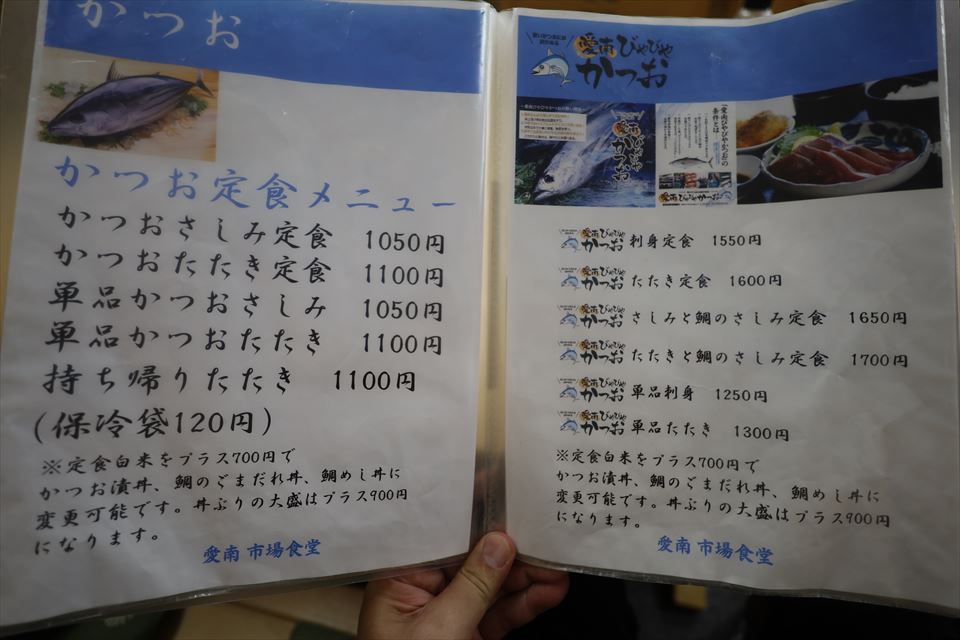 かつお
かつお定食メニュー
かつおさしみ定食 1050円
かつおたたき定食 1100円
単品かつおさしみ 1050円
単品かつおたたき 1100円
持ち帰りたたき 1100円
(保冷袋120円)
※定食白米をプラス700円で
かつお漬丼、鯛のごまだれ丼、鯛めし丼に
変更可能です。丼ぶりの大盛はプラス900円
になります。
愛南 市場食堂
愛南びやびや
かつお
愛南びやびや
かつお
「愛南びやびやかつお」の
条件とは
愛南びやびやかつお
愛南びやびやかつお 刺身定食 1550円
愛南びやびやかつお たたき定食 1600円
愛南びやびやかつお さしみと鯛のさしみ定食 1650円
愛南びやびやかつお たたきと鯛のさしみ定食 1700円
愛南びやびやかつお 単品刺身 1250円
愛南びやびやかつお 単品たたき 1300円
※定食白米をプラス700円で
かつお漬丼、鯛のごまだれ丼、鯛めし丼に
変更可能です。丼ぶりの大盛はプラス900円
になります。
愛南 市場食堂